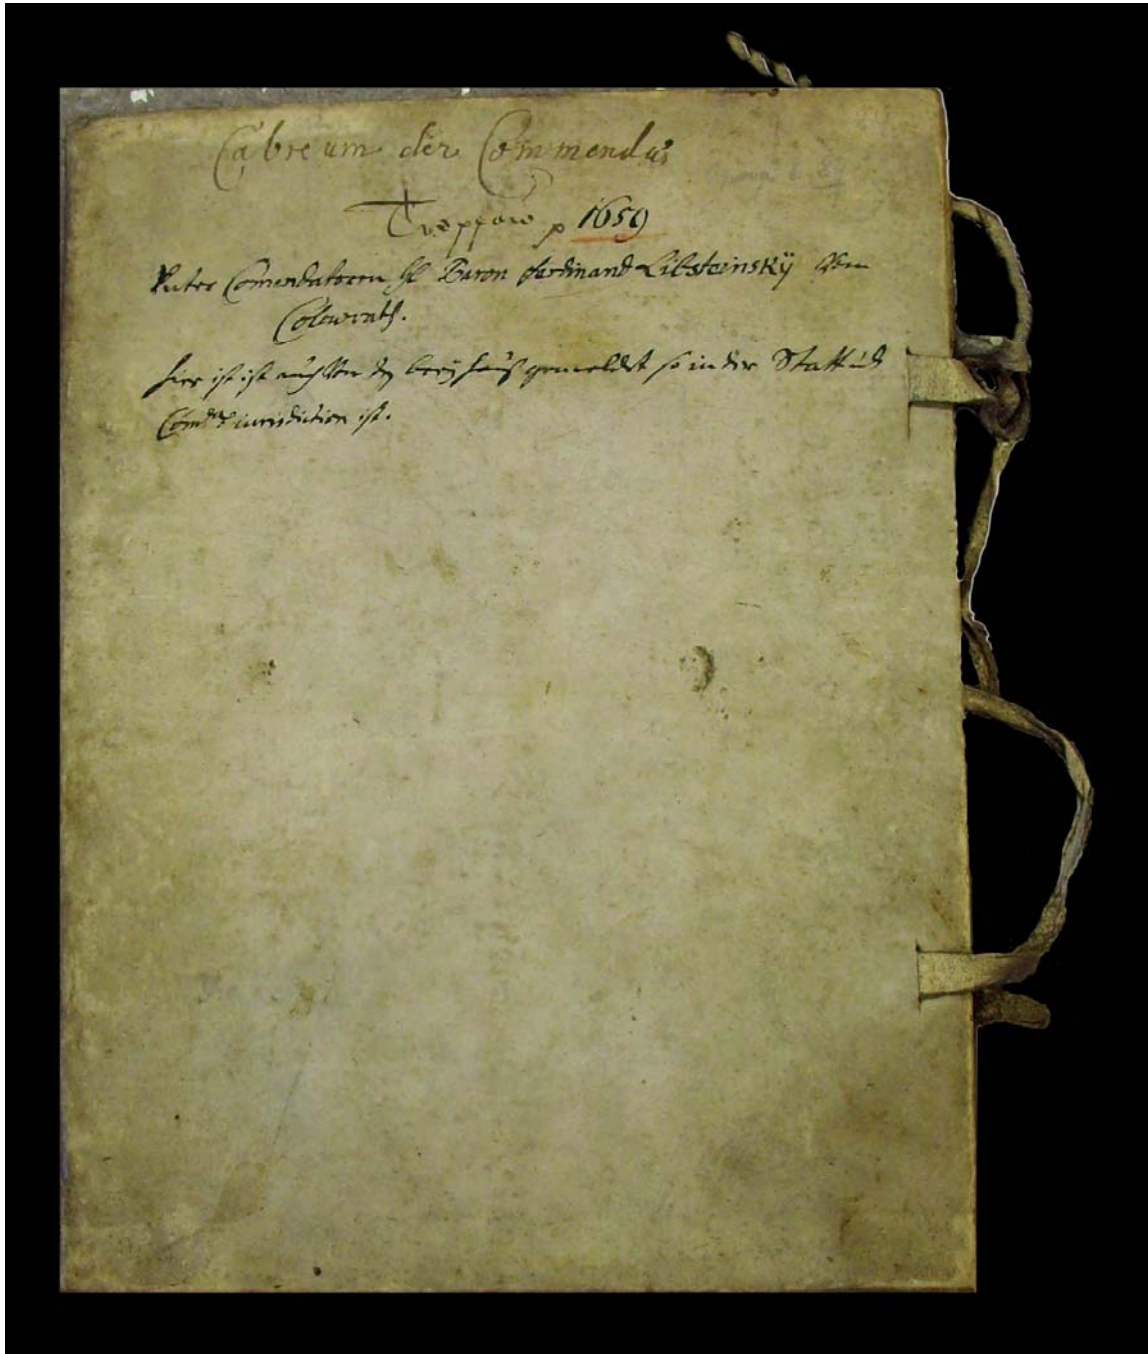 Cabreum der Commenda
Troppaw p 1659
Unter Comendatorn H Baron Ferdinand Libsteinskÿ Von
Colowrath.
hier ist ist auch Von gemeldet so in der Statt
jurisdiction ist.